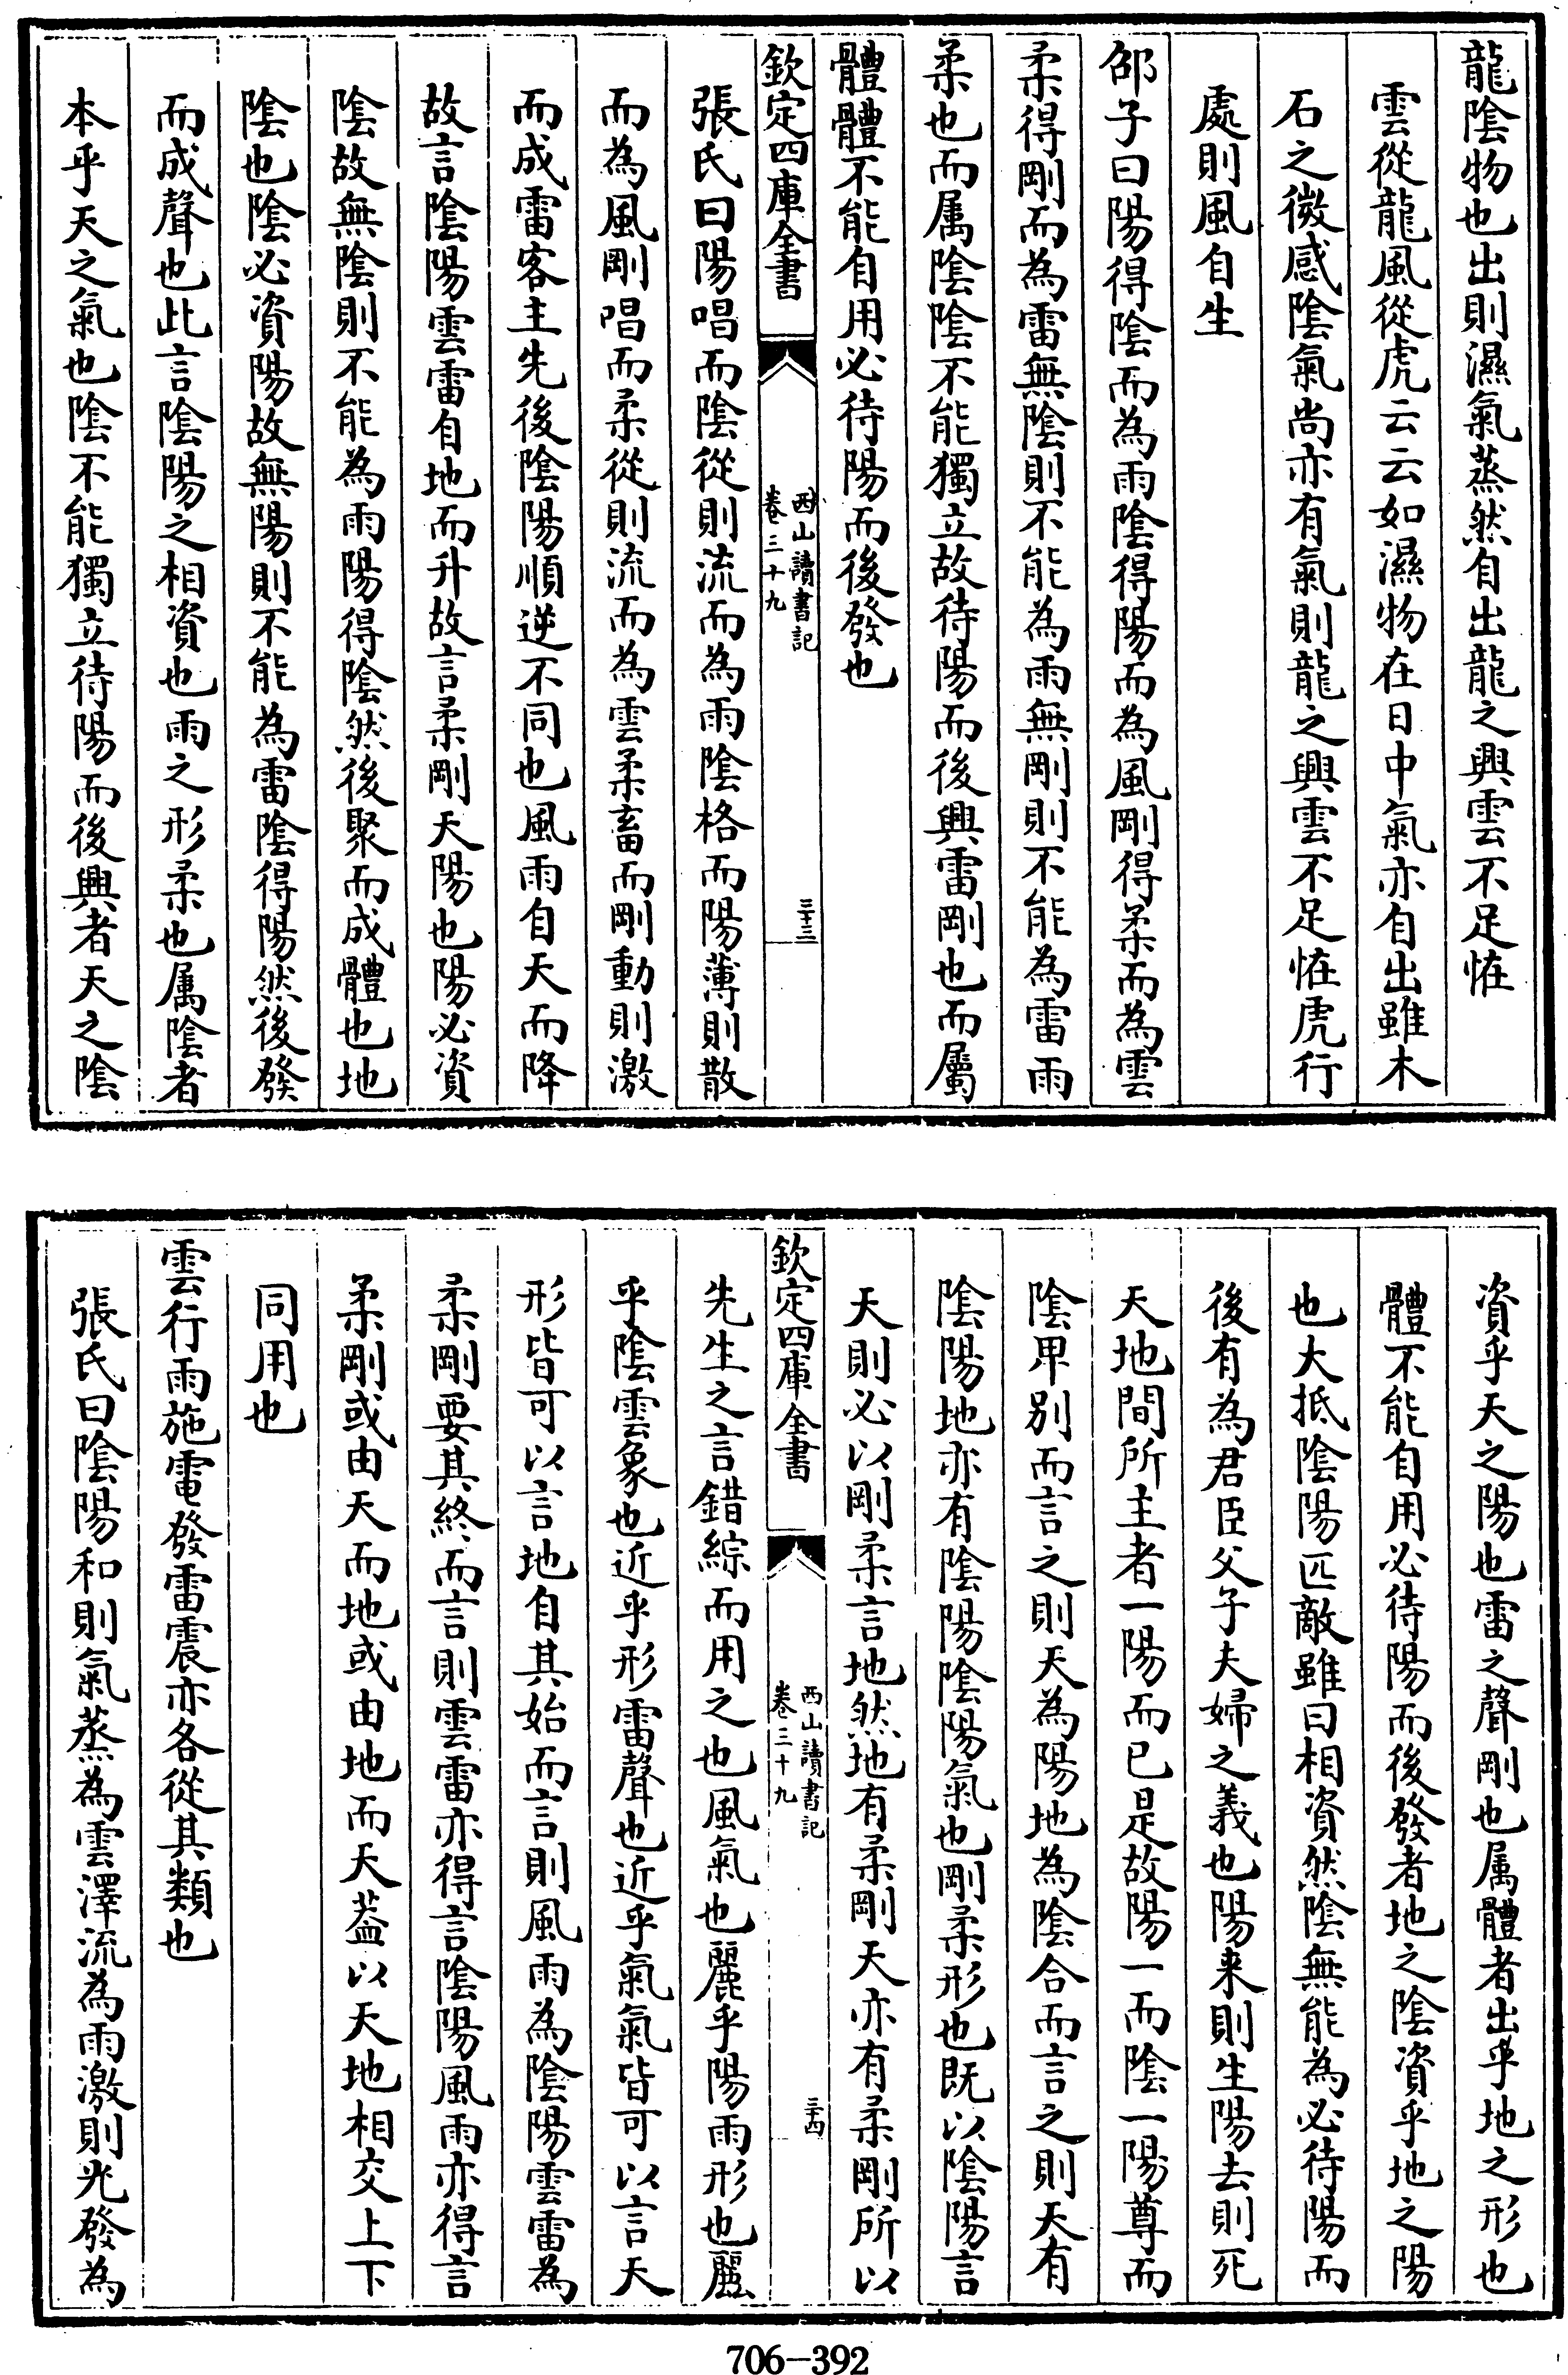 龍陰物也出則濕氣蒸然自出龍之興雲不足恠
雲從龍風從虎云云如濕物在日中氣亦自出雖木
石之微感陰氣尚亦有氣則龍之興雲不足恠虎行
處則風自生
邵子曰陽得陰而為雨陰得陽而為風剛得柔而為雲
柔得剛而為雷無陰則不能為雨無剛則不能為雷雨
柔也而属陰陰不能獨立故待陽而後興雷剛也而屬
體體不能自用必待陽而後發也
欽定四庫全書
西山讀書記
卷三十九
三十三
張氏曰陽唱而陰從則流而為雨陰格而陽薄則散
而為風剛唱而柔從則流而為雲柔畜而剛動則激
而成雷客主先後陰陽順逆不同也風雨自天而降
故言陰陽雲雷自地而升故言柔剛天陽也陽必資
陰故無陰則不能為雨陽得陰然後聚而成體也地
陰也陰必資陽故無陽則不能為雷陰得陽然後發
而成聲也此言陰陽之相資也雨之形柔也属陰者
本乎天之氣也陰不能獨立待陽而後興者天之陰
資乎天之陽也雷之聲剛也属體者出乎地之形也
體不能自用必待陽而後發者地之陰資乎地之陽
也大抵陰陽匹敵雖曰相資然陰無能為必待陽而
後有為君臣父子夫婦之義也陽来則生陽去則死
天地間所主者一陽而已是故陽一而陰一陽尊而
陰卑別而言之則天為陽地為陰合而言之則天有
陰陽地亦有陰陽陰陽氣也剛柔形也既以陰陽言
天則必以剛柔言地然地有柔剛天亦有柔剛所以
欽定四庫全書
西山讀書記
卷三十九
三十四
先生之言錯綜而用之也風氣也麗乎陽雨形也麗
乎陰雲象也近乎形雷聲也近乎氣氣皆可以言天
形皆可以言地自其始而言則風雨為陰陽雲雷為
柔剛要其終而言則雲雷亦得言陰陽風雨亦得言
柔剛或由天而地或由地而天葢以天地相交上下
同用也
雲行雨施電發雷震亦各從其類也
張氏曰陰陽和則氣蒸為雲澤流為雨激則光發為
706-392